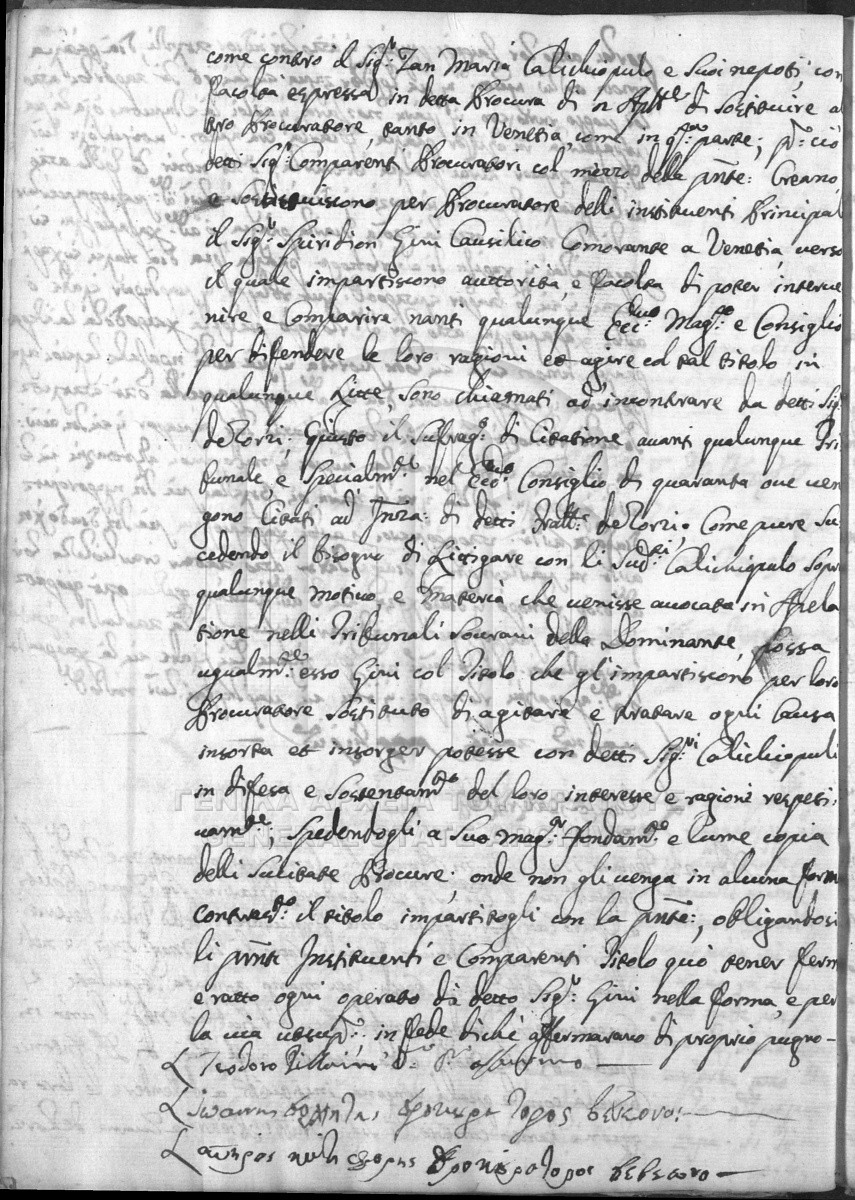 come contro il Sigr. Zan Maria Calichiopulo e suoi nepoti, con
facoltà espressa in detta Procura di di sostituire al
tro Procuratore, tanto in Venetia, come in qsta. parte; pr. ciò
detti Sigri. Comparenti Procuratori col mezzo della pnte: Creano,
e sostituiscono per Procuratore delli instituenti Principali
il Sigr. Spiridion Gini Causidico Comorante a Venetia, verso
il quale impartiscono auttorità, e facoltà di poter interve
nire e Comparire nanti qualunque Ecc:mo Mag:to e Consiglio
per difendere le loro ragioni et agire col tal titolo in
qualunque Litte, sono chiamati ad incontrare da detti Sigri.
de Zorzi; giusto il Sufrag:o di Citatione avanti qualunque Tri
bunale, e specialmte. nel Ecc:mo Consiglio di quaranta ove ven
gono Citati ad Inza: di detti fratlli: de Zorzi. Come pure su
cedendo il bisogno di Littigare con li sudtti. Calichiopulo sopra
qualunque motivo, e materia che venisse avocata in Apela
tione nelli Tribunali Sovrani della Dominante, possa
ugualmte: esso Gini col Titolo che gl'impartiscono per loro
Procuratore sostituto di agitare e tratare ogni Causa
insorta et insorger potesse con detti Sigri. Calichiopuli
in difesa e sostentamto. del loro interesse e ragioni respeti:
vamte:, spedendogli a suo magr: fondamto: e lume copia
delli sucitate Procure; onde non gli venga in alcuna forma
contradto: il titolo impartitogli con la pnte:, obligandosi
li pnti Instituenti e Comparenti Titolo quò tener fermo
e ratto ogni operato da detto Sigr. Gini nella forma, e per
la via utsupr:; in fede di che affermarano di proprio pugno-
L Teodoro
L
L